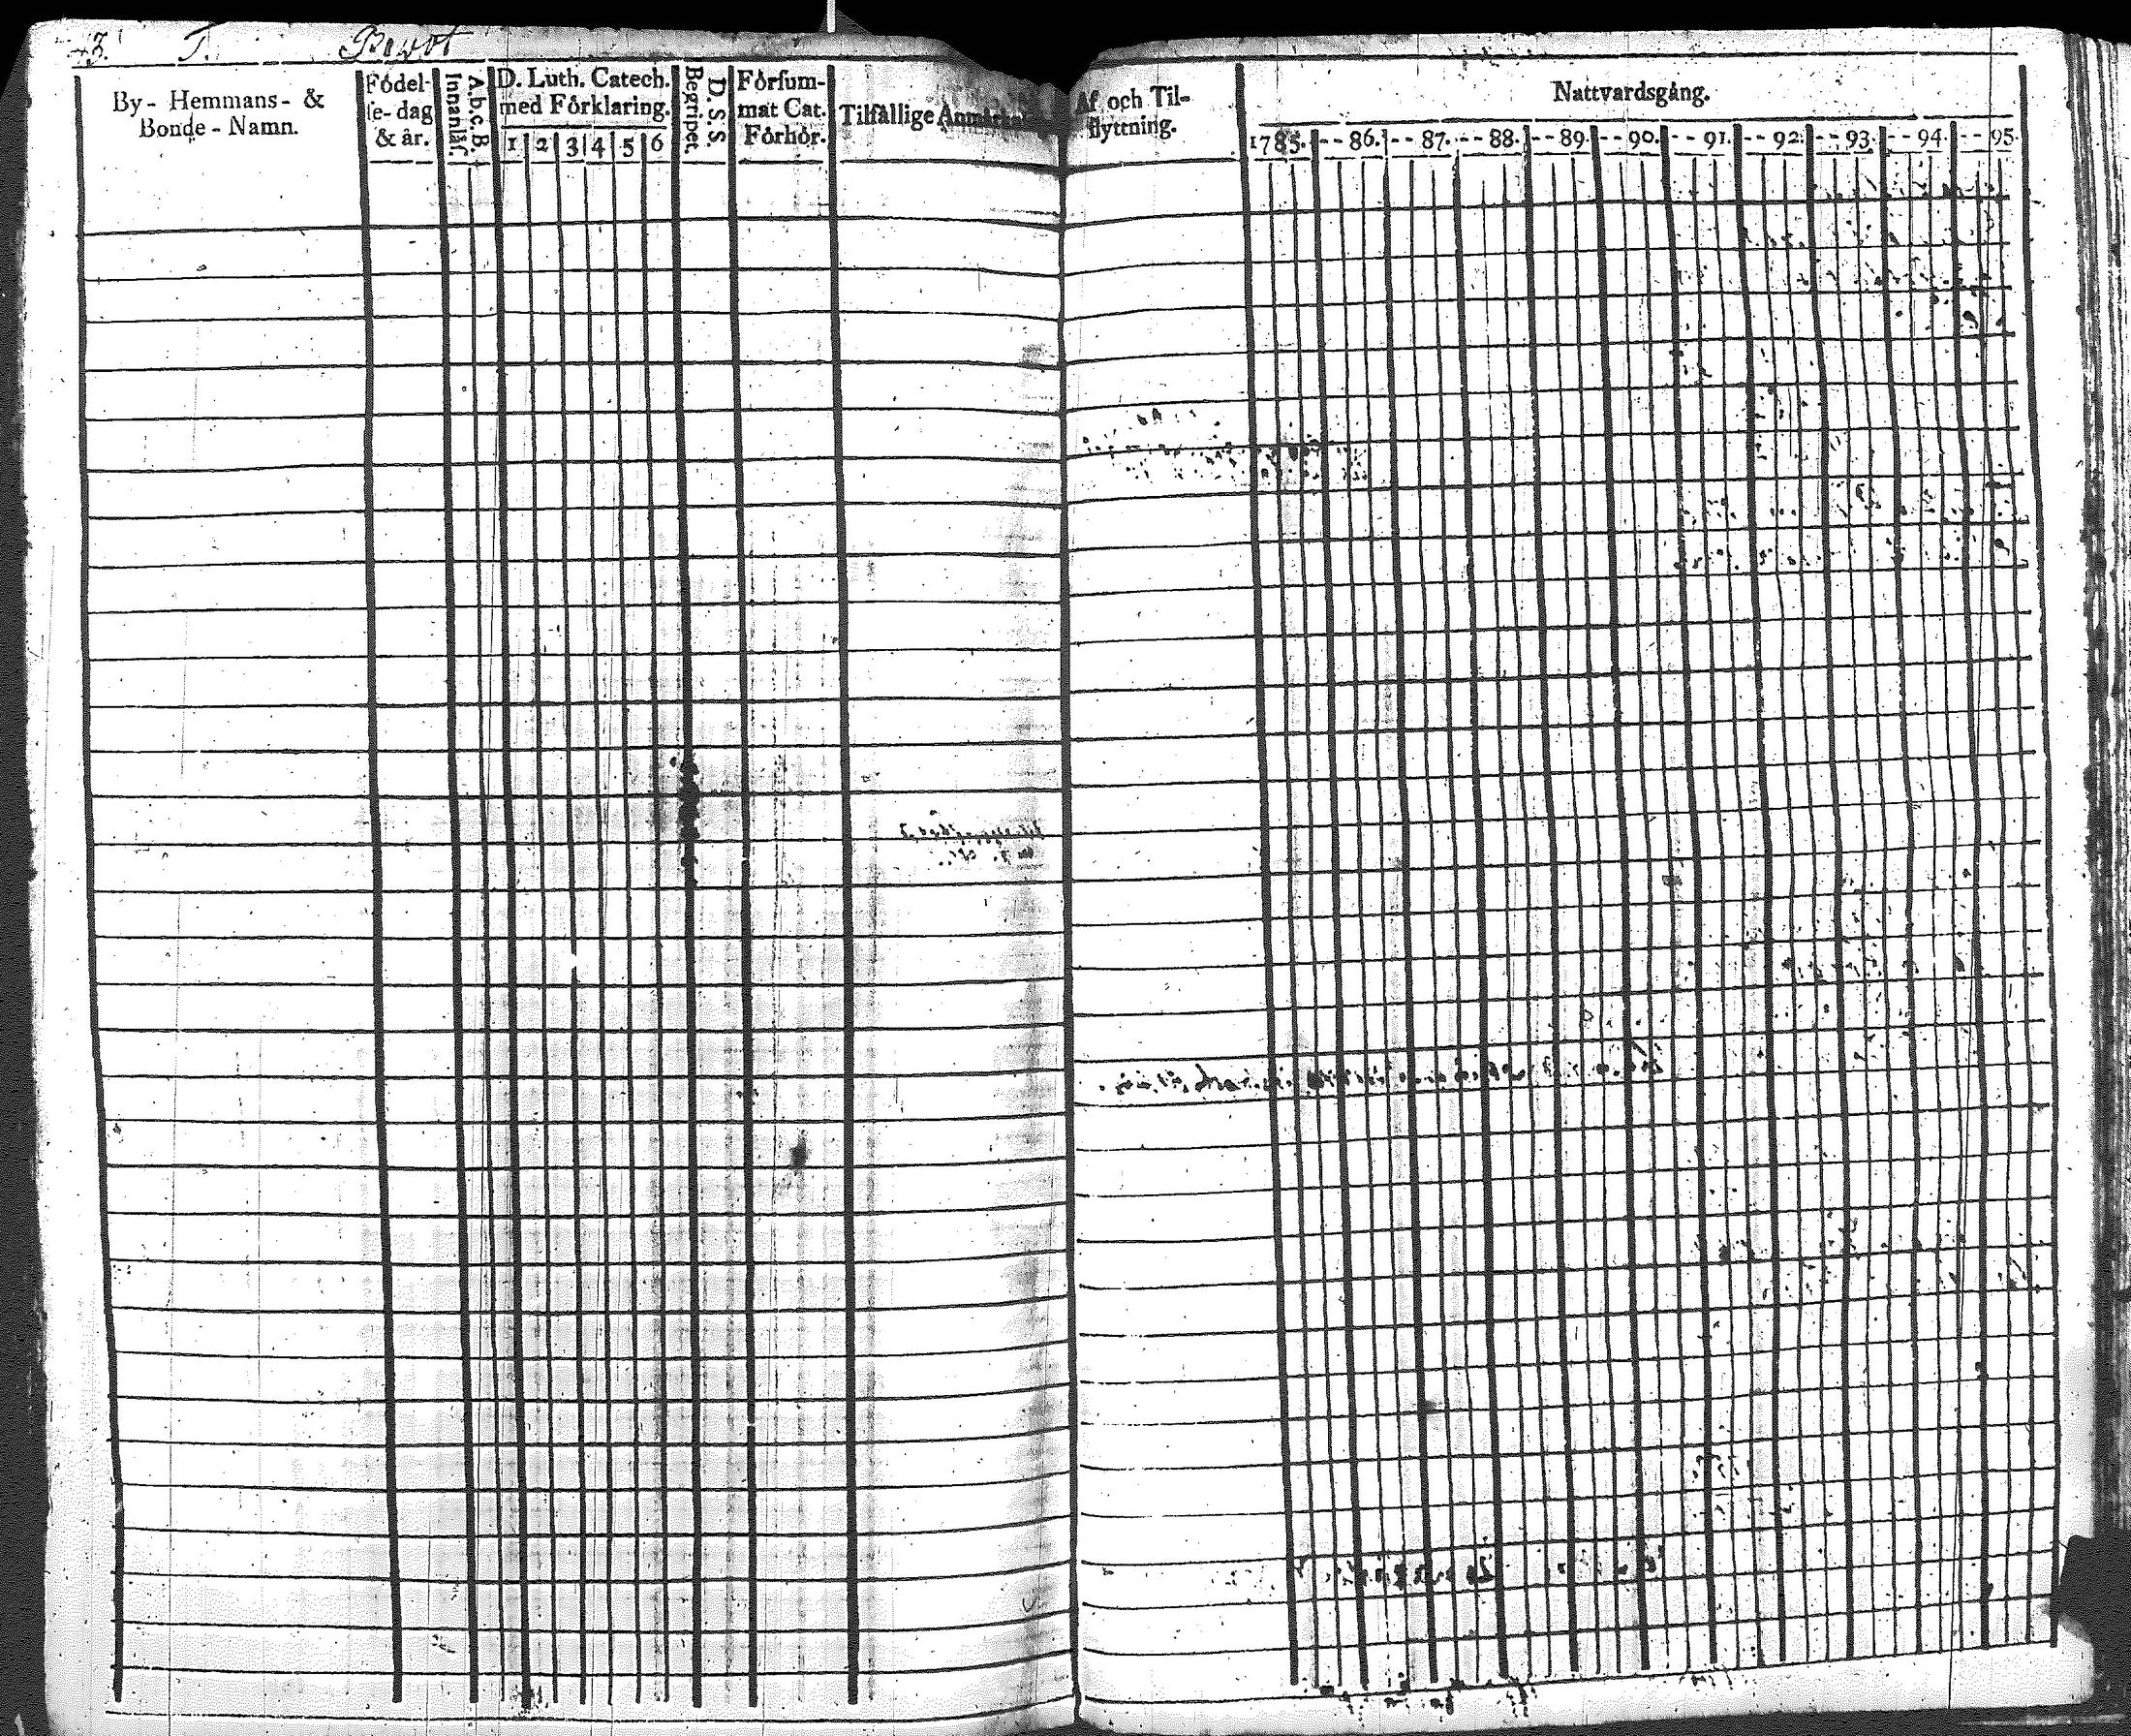 43. T.
By- Hemmans- &
Bonde- Namn.
Födel-
se- dag
& år.
A.b.c.B.
Innanläs.
D. Luth. Catech.
med Förklaring.
1 2 3 4 5 6
D. S. S.
Begripet.
Försum-
mat Cat.
Förhör.
Tilfällige
Af och Til-
flyttning.
Nattvardsgång.
1785. -- 86. -- 87. -- 88. -- 89. -- 90. -- 91. -- 92. -- 93. -- 94. -- 95.